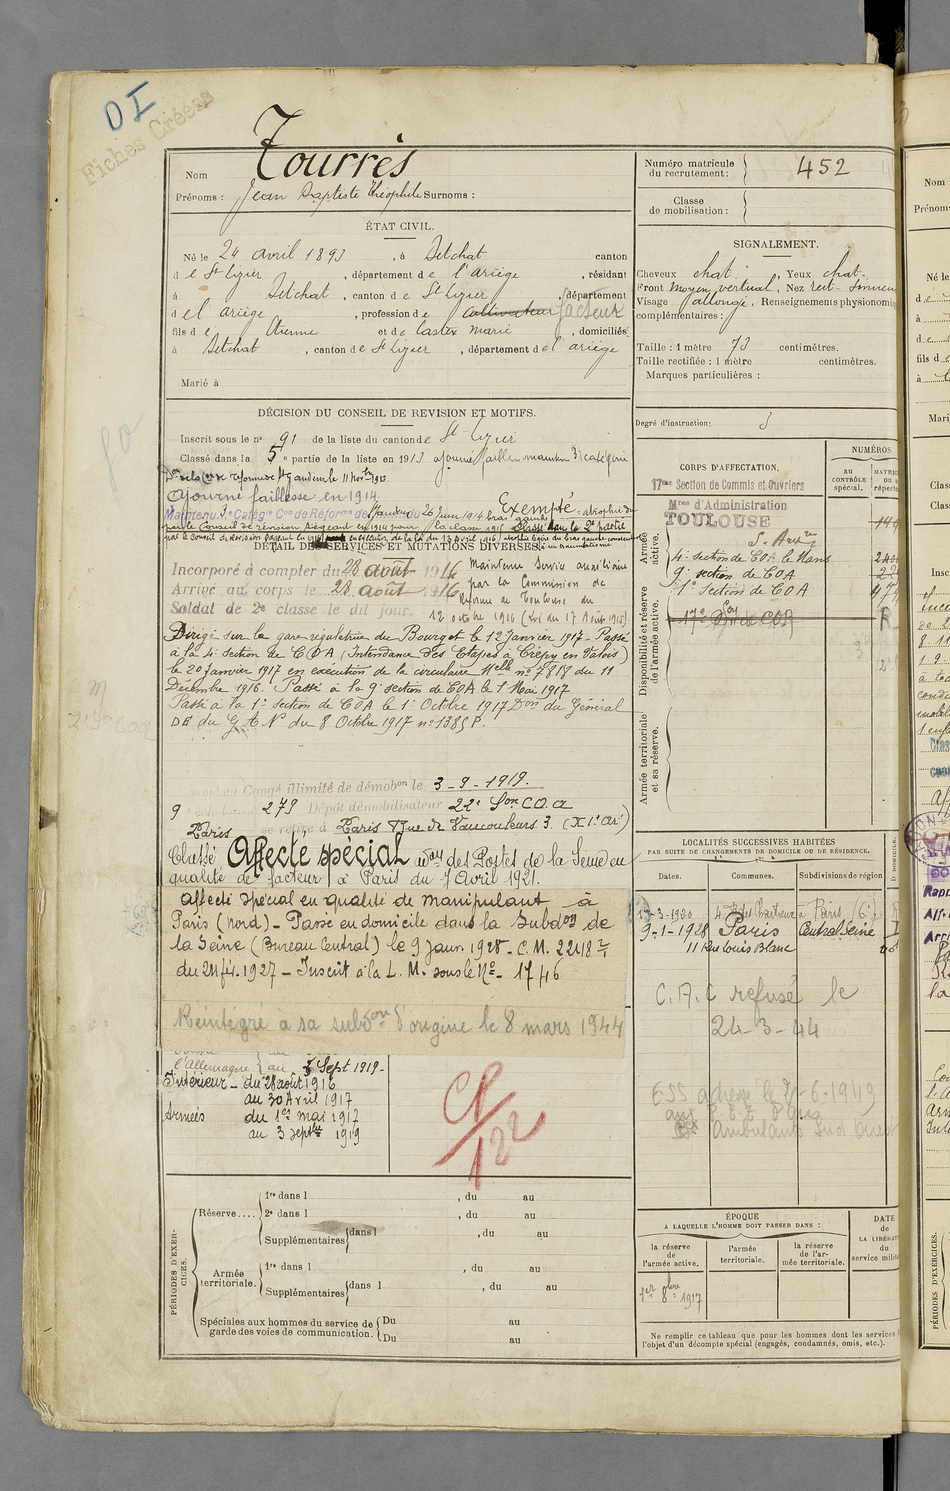 D I
Fiches Créées
Nom Tourrès
Prénoms : Jean Baptiste Théophile Surnoms :
ÉTAT CIVIL.
Né le 24 avril 1893, à Betchat canton
de St Lizier, département de l'ariège, résidant
à Betchat, canton de St Lizier, département
de l ariège, profession de cultivateur facteur
fils de Etienne et de Castex Marie, domiciliés
à Betchat, canton de St Lizier, département de l'ariège
Marié à
DÉCISION DU CONSEIL DE REVISION ET MOTIFS.
Inscrit sous le n° 91 de la liste du canton de St Lizier
Classé dans la 5e partie de la liste en 1913 ajourné faiblesse maintenu 3e catégorie
Don de la Con de réforme de St Gaudens le 11 Novbre 1913.
Ajourné faiblesse en 1914.
Maintenu 3e Catégie Con de Réforme de St Gaudens du 26 Juin 1914 Exempté - atrophie du
par le Conseil de révision siégeant en 1914 pour la classe 1915 Classé dans la 2e partie
DÉTAIL DES SERVICES ET MUTATIONS DIVERSES.
Incorporé à compter du 28 août 1916
Arrivé au corps le 28 août 1916
Soldat de 2e classe le dit jour.
Maintenu Service auxiliaire
par la Commission de
Réforme de Toulouse du
12 octobre 1916 (Loi du 17 Août 1915)
Dirigé sur la gare régulatrice du Bourget le 12 Janvier 1917 - Passé
à la 4e section de COA (Intendance des Etapes à Crépy en Valois)
le 20 Janvier 1917 en exécution de la circulaire Melle n° 7818 du 11
Décembre 1916. Passé à la 9e section de COA le 1 Mai 1917
Passé à la 1e section de COA le 1 Octobre 1917 Don du Général
DE du G A N du 8 Octobre 1917 n° 1385 P.
en Congé illimité de démobon le 3-9-1919.
9 279 Dépôt démobilisateur 22e Son C.O.A
Paris se retire à Paris Rue de Vaucouleurs 3. (XIe Ar)
Classé Affecté spécial aon des Postes de la Seine en
qualité de facteur à Paris du 7 Avril 1921.
Affecté spécial en qualité de manipulant à
Paris (nord) - Passé en domicile dans la Subdon de
la Seine (Bureau Central) le 9 Janv 1928 - C.M. 22182
du 24 fév. 1927 - Inscrit à la L.M. sous le N° 1746
Réintégré à sa subdon d'origine le 8 mars 1944
l'Allemagne au 3 Sept 1919-
Intérieur - du 28 août 1916
au 30 Avril 1917
Armées du 1er mai 1917
au 3 septbre 1919
CP
122
PÉRIODES D'EXERCICES.
Réserve.... 1re dans l , du au
2e dans l , du au
Supplémentaires dans l , du au
Armée territoriale. 1re dans l , du au
Supplémentaires dans l , du au
Spéciales aux hommes du service de garde des voies de communication. Du au
Du au
Numéro matricule du recrutement : 452
Classe de mobilisation :
SIGNALEMENT.
Cheveux chat., Yeux chat.
Front moyen vertical, Nez rect.
Visage allongé, Renseignements physionomi
complémentaires :
Taille : 1 mètre 73 centimètres.
Taille rectifiée : 1 mètre centimètres.
Marques particulières :
Degré d'instruction: 3
CORPS D'AFFECTATION.
NUMÉROS
au CONTRÔLE spécial.
17me Section de Commis et Ouvriers
Mres d'Administration
TOULOUSE
S. Auxre
4e section de COA le Mans
9e section de COA
1e section de COA
17e Son de COA
Armée active.
Disponibilité et réserve de l'armée active.
Armée territoriale et sa réserve.
LOCALITÉS SUCCESSIVES HABITÉES
PAR SUITE DE CHANGEMENTS DE DOMICILE OU DE RÉSIDENCE.
Dates. Communes. Subdivisions de région
-3-1920 4 R des Chartreux à Paris (6e)
9-1-1928 Paris Central Seine
11 Rue Louis Blanc
C.A.C refusé le
24-3-44
ÉPOQUE
A LAQUELLE L'HOMME DOIT PASSER DANS :
la réserve de l'armée active.
l'armée territoriale.
la réserve de l'armée territoriale.
DATE de LA LIBÉRA du service milit
1er 8bre 1917
Ne remplir ce tableau que pour les hommes dont les services
l'objet d'un décompte spécial (engagés, condamnés, omis, etc.).